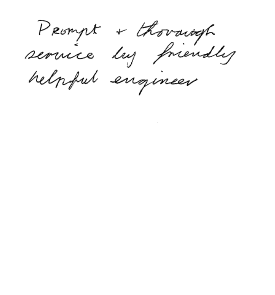 Prompt + thorough
service by friendly
helpful engineer